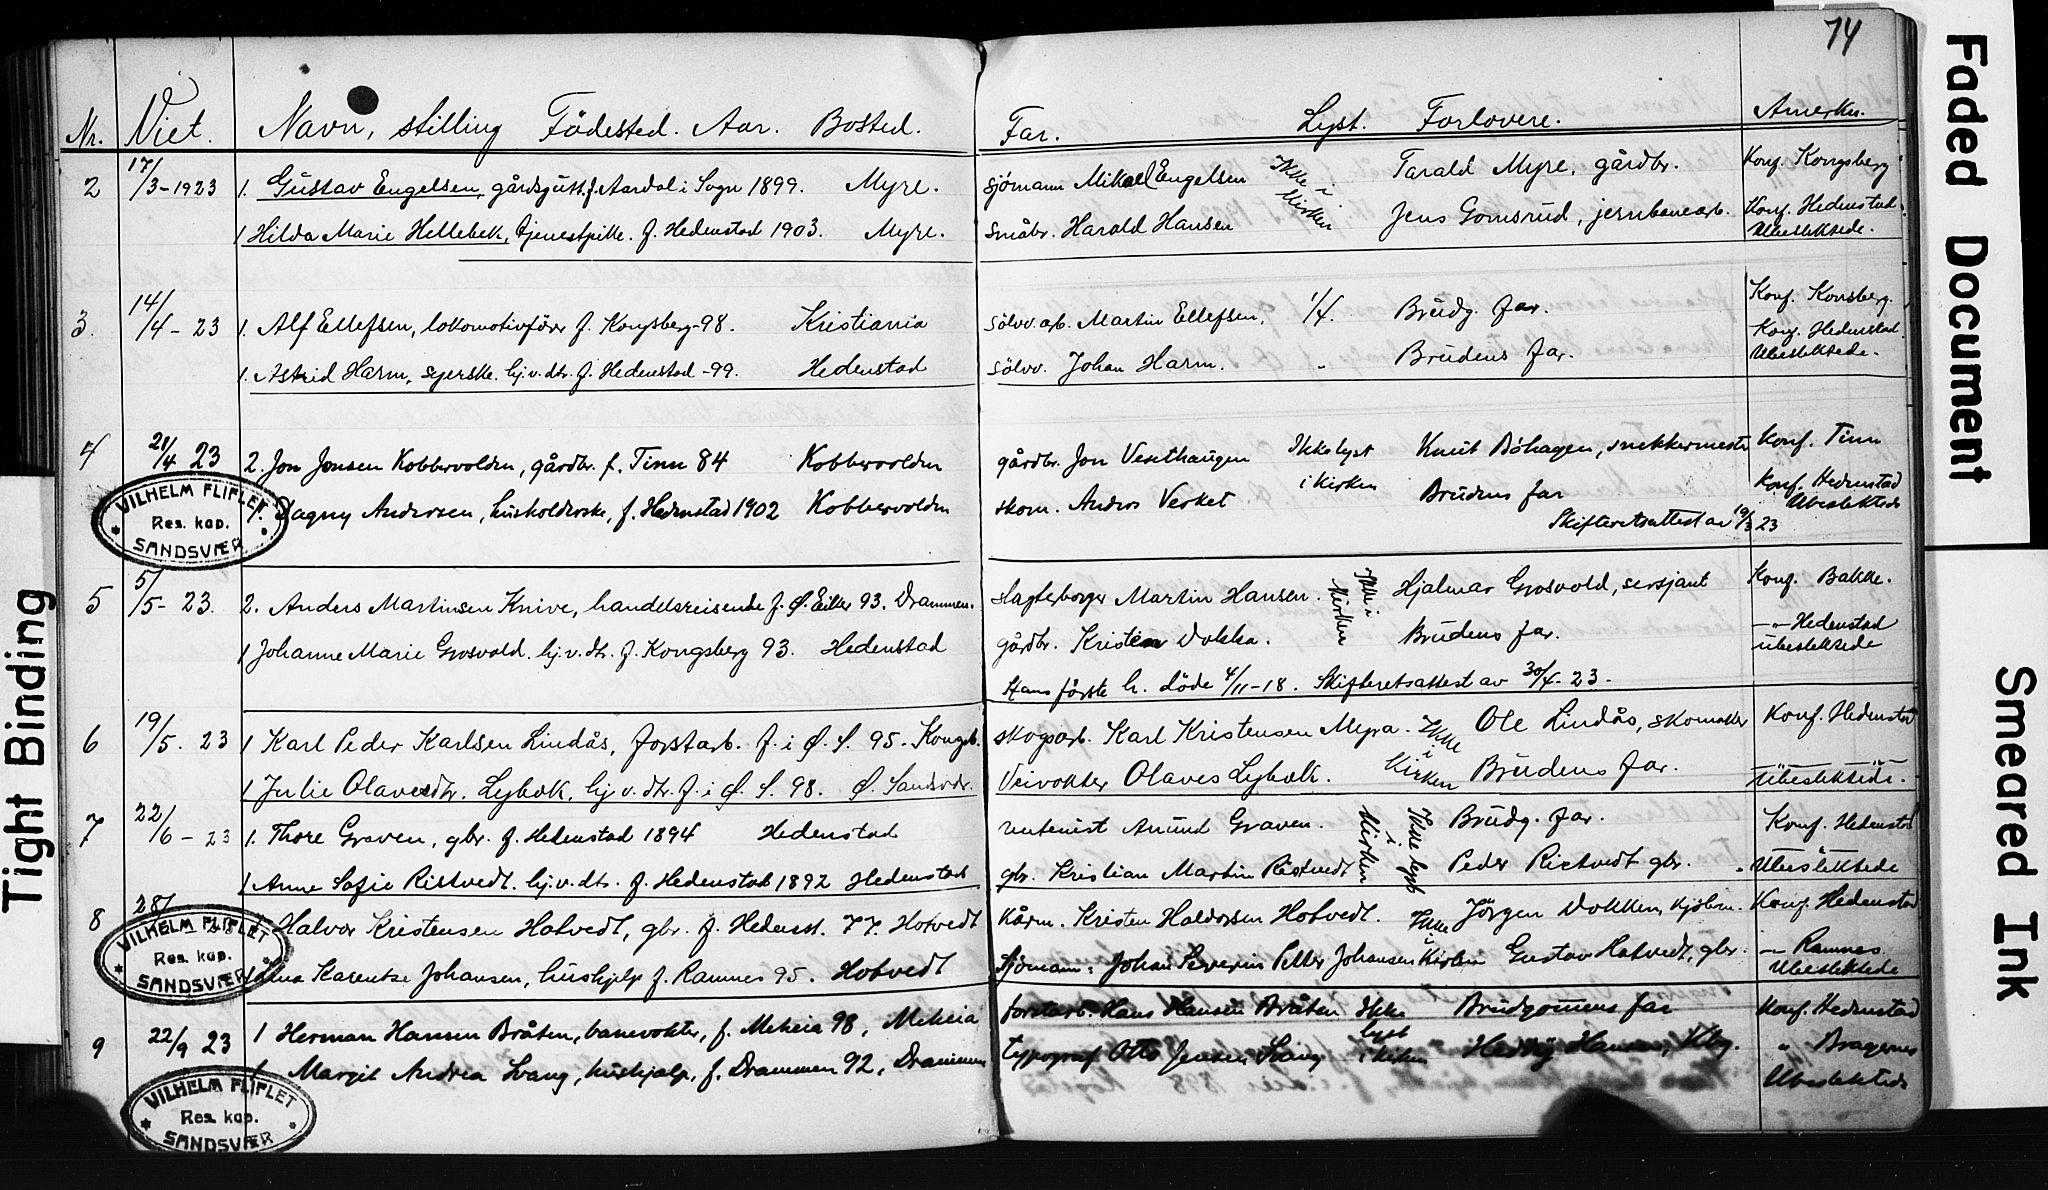 74
Nr. Viet. Navn, stilling Födested. Aar. Bosted. Far. Lyst. Forlovere. Anmerkn.
2 17/3-1923 1. Gustav Engelsen, gårdsgutt. f. Aardal i Sogn 1899. Myre. sjömann Mikael Engelsen Ikke i kirken Tarald Myre, gårdbr. Konf. Kongsberg
1 Hilda Marie Hellebek, tjenestpike. f. Hedenstad 1903. Myre. småbr. Harald Hansen Jens Gomsrud, jernbanearb. Konf. Hedenstad
Ubeslektede.
3. 14/4-23 1. Alf Ellefsen, lokomotivförer f. Kongsberg-98. Kristiania sölvv.arb. Martin Ellefsen. 1/4. Brudg. far. Konf. Konsberg.
1. Astrid Harm, syerske. hj.v.dtr. f. Hedenstad -99. Hedenstad sölvv. Johan Harm. " Brudens far. Konf. Hedenstad
Ubeslektede.
4 21/4 23 2. Jon Jonsen Kobbervolden, gårdbr. f. Tinn 84 Kobbervolden gårdbr. Jon Vesethaugen Ikke lyst i kirken Knut Böhagen, snekkermester Konf. Tinn
1. Dagny Andersen, husholderske, f. Hedenstad 1902 Kobbervolden skom. Anders Verket Brudens far Konf. Hedenstad
Ubeslektede
Skifteretsattest av 19/3 23
VILHELM FLIFLET
Res. kap.
SANDSVÆR
5 5/5-23. 2. Anders Martinsen Knive, handelsreisende f. Ø. Eiker 93. Drammen. Slagterborger Martin Hansen. Ikke i kirken Hjalmar Grosvold, sersjant Konf. Bakke.
1 Johanne Marie Grosvold. hj.v.dtr. f. Kongsberg 93. Hedenstad gårdbr. Kristen Dokka. Brudens far. -"- Hedenstad
ubeslektede
Hans förste h. döde 4/11-18. Skifteretsattest av 30/4-23.
6 19/5. 23 1 Karl Peder Karlsen Lindås, forstarb. f. i Ø. S. 95. Kongsb. skogsarb. Karl Kristensen Meyra. Ikke i Kirken Ole Lindås, skomaker Konf. Hedenstad
1 Julie Olavesdtr. Lybæk, hj.v.dtr. f. i Ø. S. 98. Ø. Sandsvær. Veivokter Olaves Lybæk. Brudens far. Ubeslektede.
7 22/6-23 1. Thore Graven, gbr. f. Hedenstad 1894 Hedenstad rentenist Anund Graven. Ikke lyst i kirken Brudg. far. Konf. Hedenstad
1 Anne Sofie Ristvedt. hj.v.dtr. f. Hedenstad 1892 Hedenstad gbr. Kristian Martin Ristvedt Peder Ristvedt gbr. Ubeslektede
8 28/ Halvor Kristensen Hotvedt, gbr. f. Hedenst. 77. Hotvedt kårm. Kristen Haldorsen Hotvedt. Ikke i kirken Jörgen Dokken, kjöbm. Konf. Hedenstad
Karentse Johansen, hushjelp f. Ramnes 95. Hotvedt Sjömann: Johan Severin Petter Johansen Gustav Hotvedt, gbr. -"- Ramnes
Ubeslektede
VILHELM FLIFLET
Res. kap.
SANDSVÆR
9 22/9 23 1 Herman Hansen Bråten, banevokter, f. Meheia 98, Meheia forstarb. Hans Hansen Bråten Ikke lyst i kirken Brudgomens far Konf. Hedenstad
1 Margit Andrea Svang, hushjelp, f. Drammen 92, Drammen typograf Otto Jensen Svang Hansen, Kbg. " Bragernes
Ubeslektede
VILHELM FLIFLET
Res. kap.
SANDSVÆR
Tight Binding
Faded Document
Smeared Ink